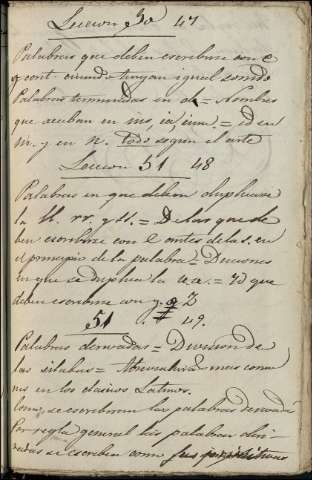 Leccion 50 47
Palabras que deben escribirse con c
q cont. cuando tengan igual sonido
Palabras terminadas en d = Nombres
que acaban en
m. y en n. Todo segun el arte
Leccion 51 48
Palabras en que deben duplicarse
la ll. rr. y = De las que de
ben escribirse con e antes de la s. en
el principio de la palabra = Dicciones
en que se duplica la = Yd que
deben escribirse con y. Z
51 49.
Palabras derivadas = Division de
las silabas = Abreviatura mas comu
nes en los clasicos Latinos.
Como se escribiran las palabras derivada
Por regla general las palabras deri-
vadas se escriben como sus primitivas